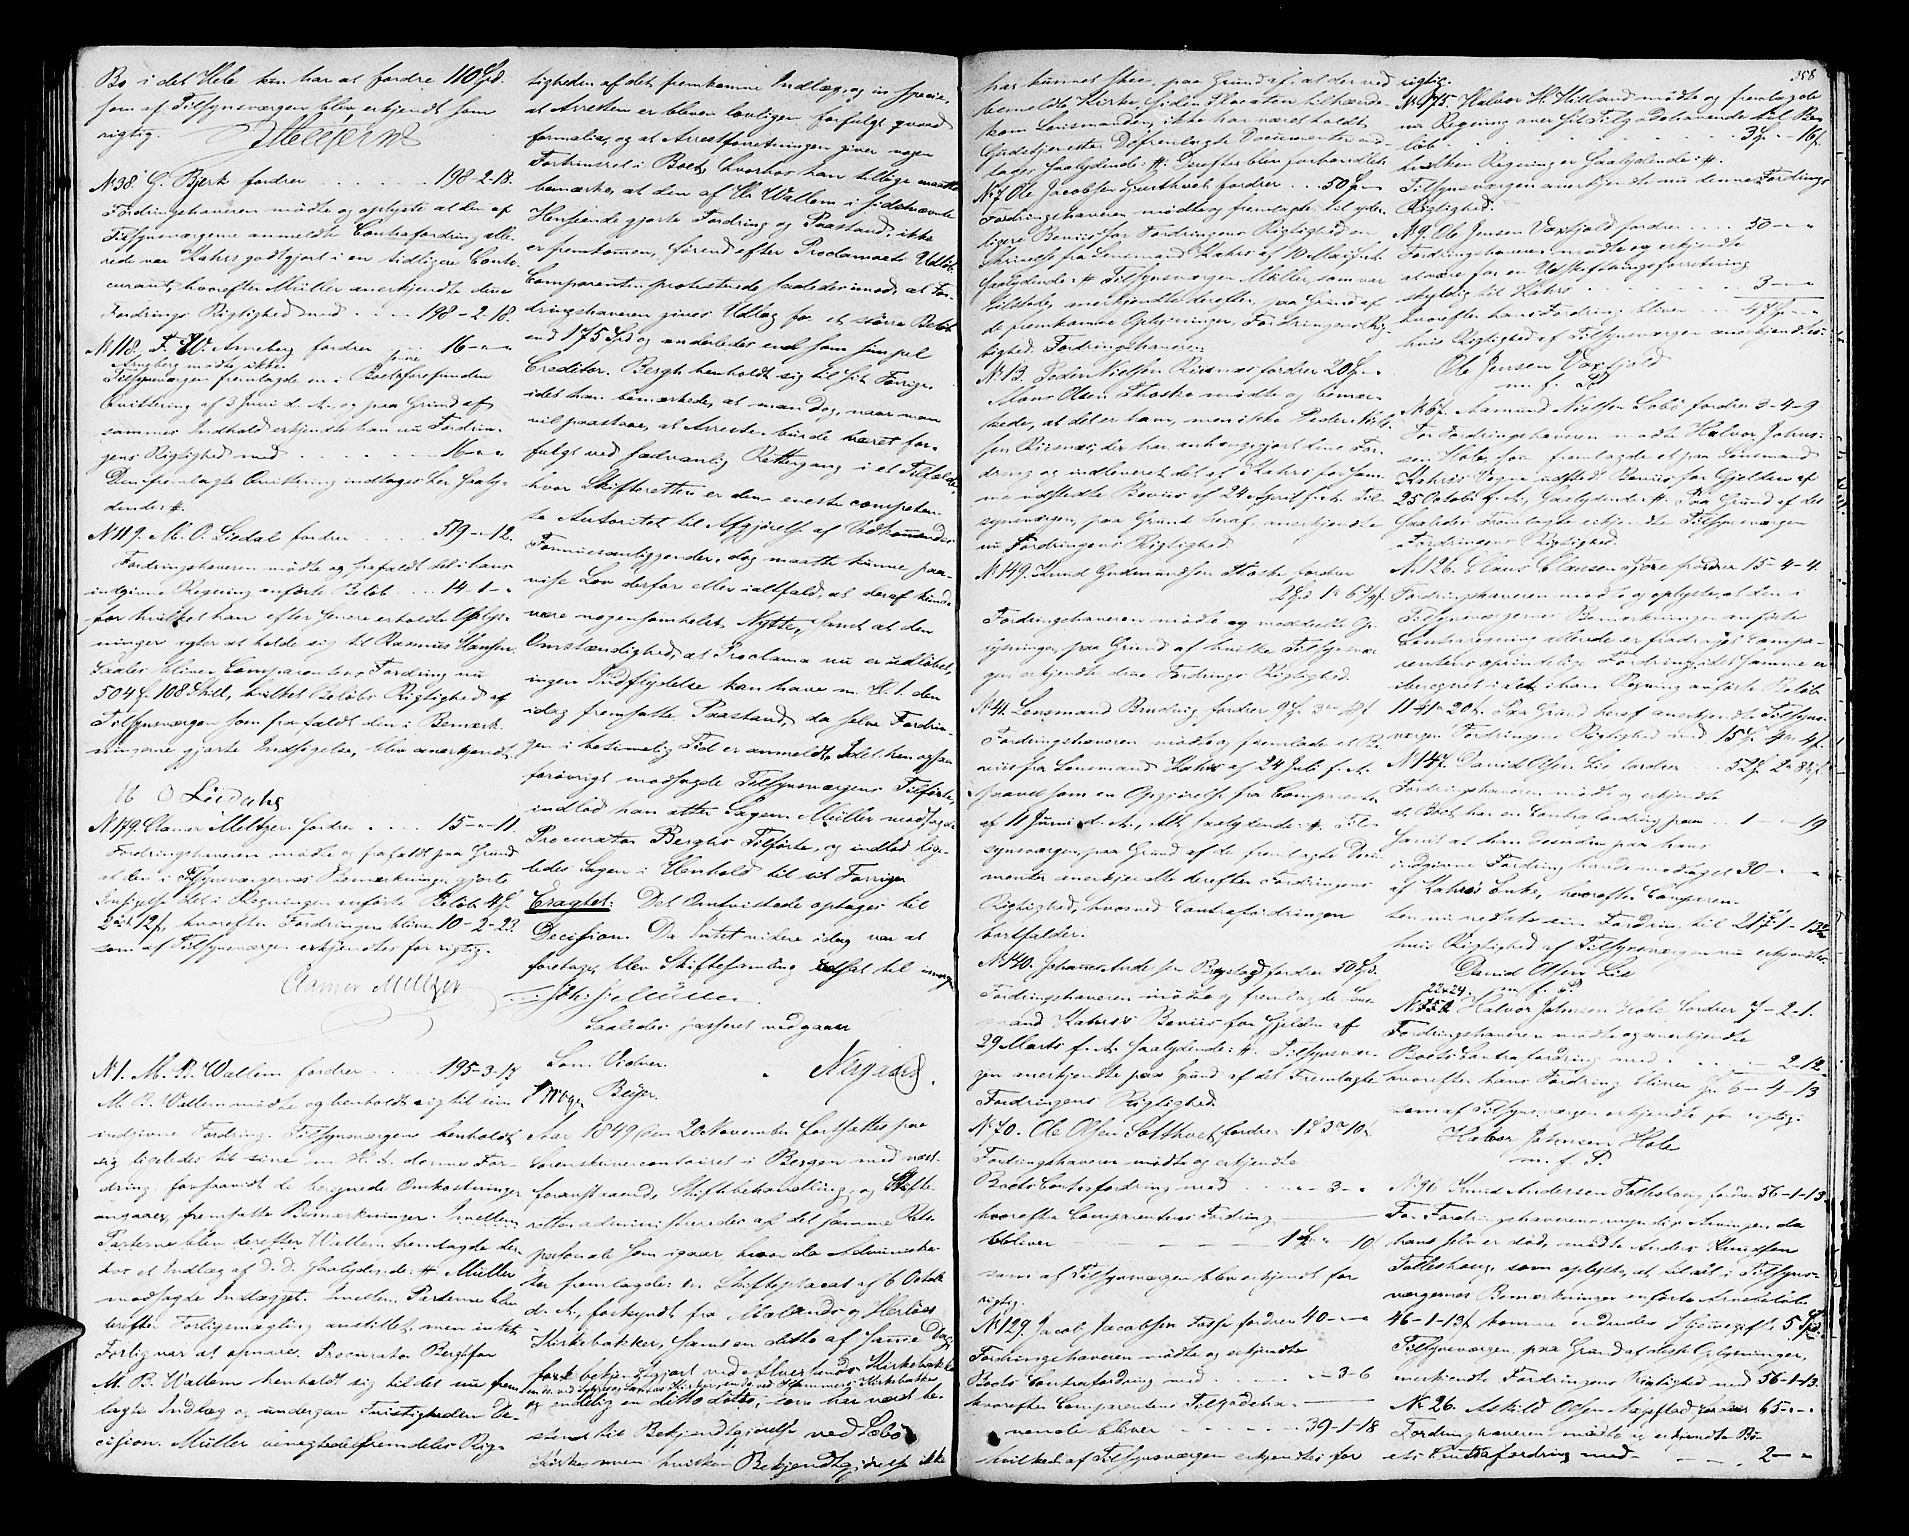 Bo i det Hele kun har at fordre 110 Spd.
som af Tilsynsværgen blev erkjendt som
rigtig.
N 38. G. Bjerk fordrer 198-2-18.
Fordringshaveren mødte og oplyste at den af
Tilsynsværgerne anmeldte Contrafordring alle-
rede var Kahrs godtgjort i en tidligere Conto
curant, hvorefter Müller anerkjendte dine
Fordrings Rigtighed med 198-2-18.
N 118. F. W. Arneberg fordrer 16-"-"
mødte ikke
Tilsynsværgen fremlagde en i Boet forefunden
Qvittering af 3 Juni d. A. og paa Grund af
sammes Indhold erkjendte han nu Fordrin-
gens Rigtighed med 16-"-"
Den fremlagte Qvittering indtages her saaly-
dende: #.
N 119. M. O. Liedal fordrer 519-"-12.
Fordringshaveren mødte og frafaldt det i hans
indgivne Regning anførte Beløb 14-1-"
for hvilket han efter senere erholdte Oplys-
ninger agter at holde sig til Rasmus Hansen,
Saaledes bliver Comparentens Fordring nu
504 108 Skill, hvilket Beløbs Rigtighed af
Tilsynsværgen som frafaldt den i Bemærk-
ningerne gjorte Indsigelse, blev anerkjendt.
M O Liedahl
N 179. Clamer Meltzer fordrer 15-"-11.
Fordringshaveren mødte og frafaldt paa Grund
af den i Tilsynsværgernes Bemærkninger gjorte
Indsigelse det i Regningen anførte Beløb 4
12 f, hvorefter Fordringen bliver 10-2-23.
som af Tilsynsværgen erkjendtes for rigtig.
Clamer Meltzer
N 1. M. R. Wallem fordrer 195-3-17
M. R. Wallem mødte og henholdt sig til sin
indgivne Fordring. Tilsynsværgen henholdt
sig ligeledes til sine m. H. t. denne For-
dring, forsaavidt de beregnede Omkostninger
angaaer, fremsatte Bemærkninger. Imellem
Parterne blev derefter Wallem fremlagde der-
hos et Indlæg af D. D. saalydende: # Müller
modsagde Indlægget. Imellem Parterne blev
derefter Forligsmægling anstillet, men intet
Forlig var at opnaae. Procurator Bergh for
M. R. Wallem henholdt sig til det nu frem-
lagte Indlæg og undergav Tvistigheden De-
cision. Müller benegtede fremdeles Rig-
tigheden af det fremkomne Indlæg, og in specie,
at Arresten er bleven lovligen forfulgt qvoad
formalia, og at Arrestforretningen giver nogen
Fortrinsret i Boet, hvorhos han tillige maatte
bemærke, at den af Hr Wallem i sidstnævnte
Henseende gjorte Fordring og Paastand, ikke
er fremkommen, førend efter Proclamaets Udløb.
Comparenten protesterede saaledes imod, at For-
dringshaveren gives Udlæg for et større Beløb
end 175 Spd og anderledes end som simpel
Creditor. Bergh henholdt sig til sit Forrige
idet han bemærkede, at man dog, naar man
vil paastaae, at Arresten burde været for-
fulgt ved sædvanlig Rettergang i et Tilfælde,
hvor Skifteretten er den eneste competen-
te Autoritet til Afgjørelse af Vedkommendes
Formuesanliggender, dog maatte kunne paa-
vise Lov derfor eller ialtfald, at deraf kunde
være nogensomhelst Nytte, samt at den
Omstændighed, at Proclama nu er udløbet,
ingen Indflydelse kan have m. H. t. den
idag fremsatte Paastand, da selve Fordrin-
gen i betimelig Tid er anmeldt. Idet han ogsaa
forøvrigt modsagde Tilsynsværgens Tilførte,
indlod han atter Sagen. Müller modsagde
Procurator Berghs Tilførte, og indlod lige-
ledes Sagen i Henhold til sit Forrige.
Eragtet: Det Omtvistede optages til
Decision. Da Intet videre idag var at
foretage, blev Skiftesamling udsat til imorgen
Müller.
Saaledes passeret vedgaaer
Som Vidner.
Krøger Beyer.
Aar 1849 den 20 November fortsattes paa
Sorenskrivercontoiret i Bergen med næst-
foranstaaende Skiftebehandling, og Skifte-
retten administreredes af det samme Rets-
personale som igaar, hvor da Administra-
tor fremlagde: en Skifteplacat af 6 Octob
d. A., forkyndt fra Mælands og Herløes
Kirkebakker, samt en ditto af samme Dag
bekjendtgjort ved Alversunds Kirkebakke
og endelig en ditto ditto, som har været be-
stemt til Bekjendtgjørelse ved Sæbø
Kirke, men hvilken Bekjendtgjørelse ikke
358
har kunnet skee, paa Grund af, at der ved
bemeldte Kirke, siden Placaten tilhænde-
kom Lensmanden, ikke har været holdt
Gudstjeneste. De fremlagte Documenter ind-
tages saalydende: #. Derefter blev forhandlet
N 7. Ole Jacobsen Hjertnes fordrer 50
Fordringshaveren mødte og fremlagde til yder-
ligere Beviis for Fordringens Rigtighed en
Skrivelse fra Lensmand Kahrs af 10 Mai f. A.
saalydende: # Tilsynsværgen Müller, som var
tilstede, anerkjendte derefter, paa Grund af
de fremkomne Oplysninger, Fordringens Rig-
tighed. Fordringshaveren
N 13. Peder Nielsen Risnæs fordrer 20
Mons Olsen Thoske mødte og bemær-
kede, at det er ham, men ikke Peder Niel-
sen Risnæs, der har anhængiggjort denne For-
dring og indleveret det af Kahrs for sam-
me udstedte Beviis af 24 April f. A. Til-
synsværgen, paa Grund heraf anerkjendte
nu Fordringens Rigtighed.
N 149. Knud Gudmundsen Thoske, fordrer
2 1 6
Fordringshaveren mødte og meddelte Op-
lysninger, paa Grund af hvilke Tilsynsvær-
gen erkjendte dine Fordrings Rigtighed.
N 41. Lensmand Bendrig fordrer 9
Fordringshaveren mødte og fremlagde et Be-
viis fra Lensmand Kahrs af 24 Juli f. A.
saavelsom en Opgjørelse fra Comparenten
af 11 Juni d. A., Alt saalydende: # Til-
synsværgen, paa Grund af de fremlagte Docu-
menter anerkjendte derefter Fordringens
Rigtighed, hvorved Contrafordringen
bortfalder.
N 140. Johannes Andersen fordrer 50 Spd.
Fordringshaveren mødte og fremlagde Lens-
mand Kahrs's Beviis for Gjelden af
29 Marts f. A. saalydende: #. Tilsynsvær-
gen anerkjendte paa Grund af det Fremlagte
Fordringens Rigtighed.
N 70. Ole Olsen fordrer 1 3 10
Fordringshaveren mødte og erkjendte
Boets Contrafordring med "-3-"
hvorefter Comparentens Fordring
bliver 1 " 10
som af Tilsynsværgen blev erkjendt for
rigtig.
N 129. Jacob Jacobsen fordrer 40-"-"
Fordringshaveren mødte og erkjendte
Boets Contrafordring med "-3-6
hvorefter Comparentens Tilgodeha-
vende bliver 39-1-18
hvilket af Tilsynsværgen erkjendtes for
rigtig.
N 175. Halvor H. Hitland mødte og fremlagde
nu Regning over sit Tilgodehavende til Be-
løb 3 " 16
hvilken Regning er saalydende: #.
Tilsynsværgen anerkjendte nu denne Fordrings
Rigtighed.
N 9. Ole Jensen Vaxfjold fordrer 50-"-"
Fordringshaveren mødte og erkjendte
at være for en Udskiftningsforretning
skyldig til Kahrs 3-"-"
hvorefter hans Fordring bliver 47
hvis Rigtighed af Tilsynsværgen anerkjendtes
Ole Jensen Vaxfjold
m. f. P.
N 67. Asmund Nielsen Sæbø fordrer 3-4-9
For Fordringshaveren mødte Halvor Johns-
sen Hole, som fremlagde et paa Lensmand
Kahrs's Vegne udstedt Beviis for Gjelden af
25 Octobr f. A., saalydende: #. Paa Grund af det
saaledes Fremlagte erkjendte Tilsynsværgen
Fordringens Rigtighed.
N 126. Claus Clausen fordrer 15-4-4.
Fordringshaveren mødte og oplyste, at den i
Tilsynsværgernes Bemærkninger anførte
Contraregning allerede er fradraget Compa-
rentens oprindelige Fordring, idet samme er
iberegnet i det i hans Regning anførte Beløb
11 4 20. Paa Grund heraf anerkjendte Tilsyns-
værgen Fordringens Rigtighed med 15 4 4
N 147. David Olsen Lie fordrer 52 2 8
Fordringshaveren mødte og erkjendte
at Boet har en Contrafordring paa 1-"-19
samt at han desuden paa hans
indgivne Fordring havde modtaget 30-"-"
af Kahrs's Enke, hvorefter Comparen-
ten nu reducerede sin Fordring til 21-1-13
hvis Rigtighed af Tilsynsværgen nu erkjendtes.
David Olsen Lie
m. f. P.
22 & 29.
N Halvor Johnsen Hole fordrer 7-2-1.
Fordringshaveren mødte og anerkjendte
Boets Contrafordring med "-2-12
hvorefter hans Fordring bliver 6-4-13
som af Tilsynsværgen erkjendtes for rigtig.
Halvor Johnsen Hole
m. f. P.
N 90. Knud Andersen Fatleshaug, fordrer 56-1-13
For Fordringshaverens umyndige Arvinger, da
han selv er død, mødte Anders Knudsen
Fatleshaug, som oplyste, at til det i Tilsyns-
værgernes Bemærkninger anførte Arvebeløb
46-1-13 komme endnu 5 Spd.
Tilsynsværgen, paa Grund af disse Oplysninger,
anerkjendte Fordringens Rigtighed med 56-1-13.
N 26. Askild Olsen fordrer 65-"-"
Fordringshaveren mødte og erkjendte Bo-
ets Contrafordring med 2-"-"